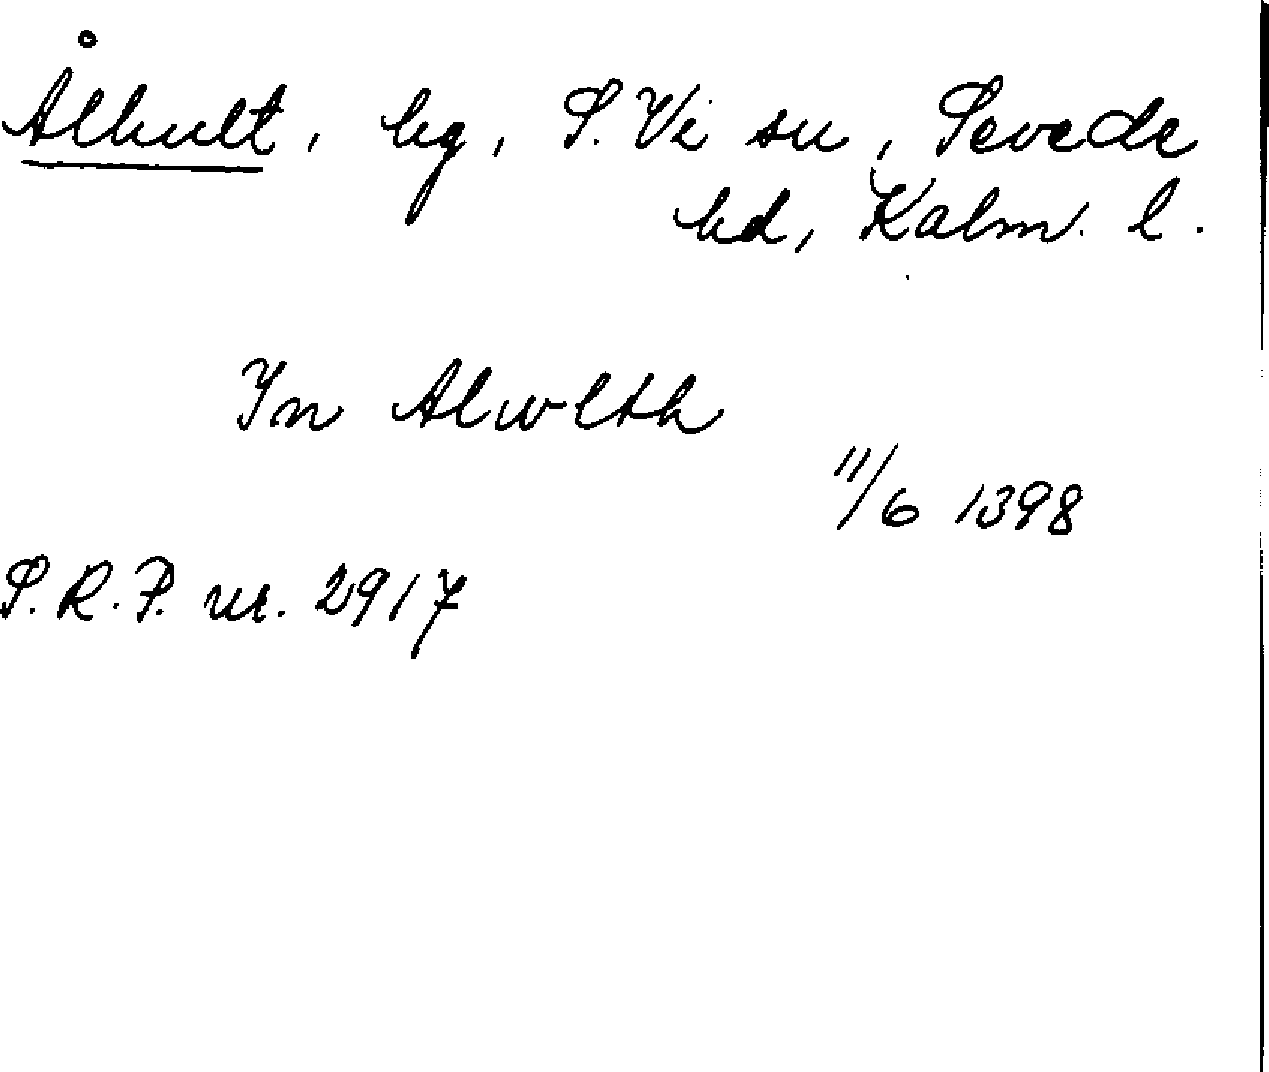 Ålhult, hg, S. Vi sn, Sevede
hd, Kalm. l.
In Alwlth
11/6 1398
S.R.P. nr. 2917